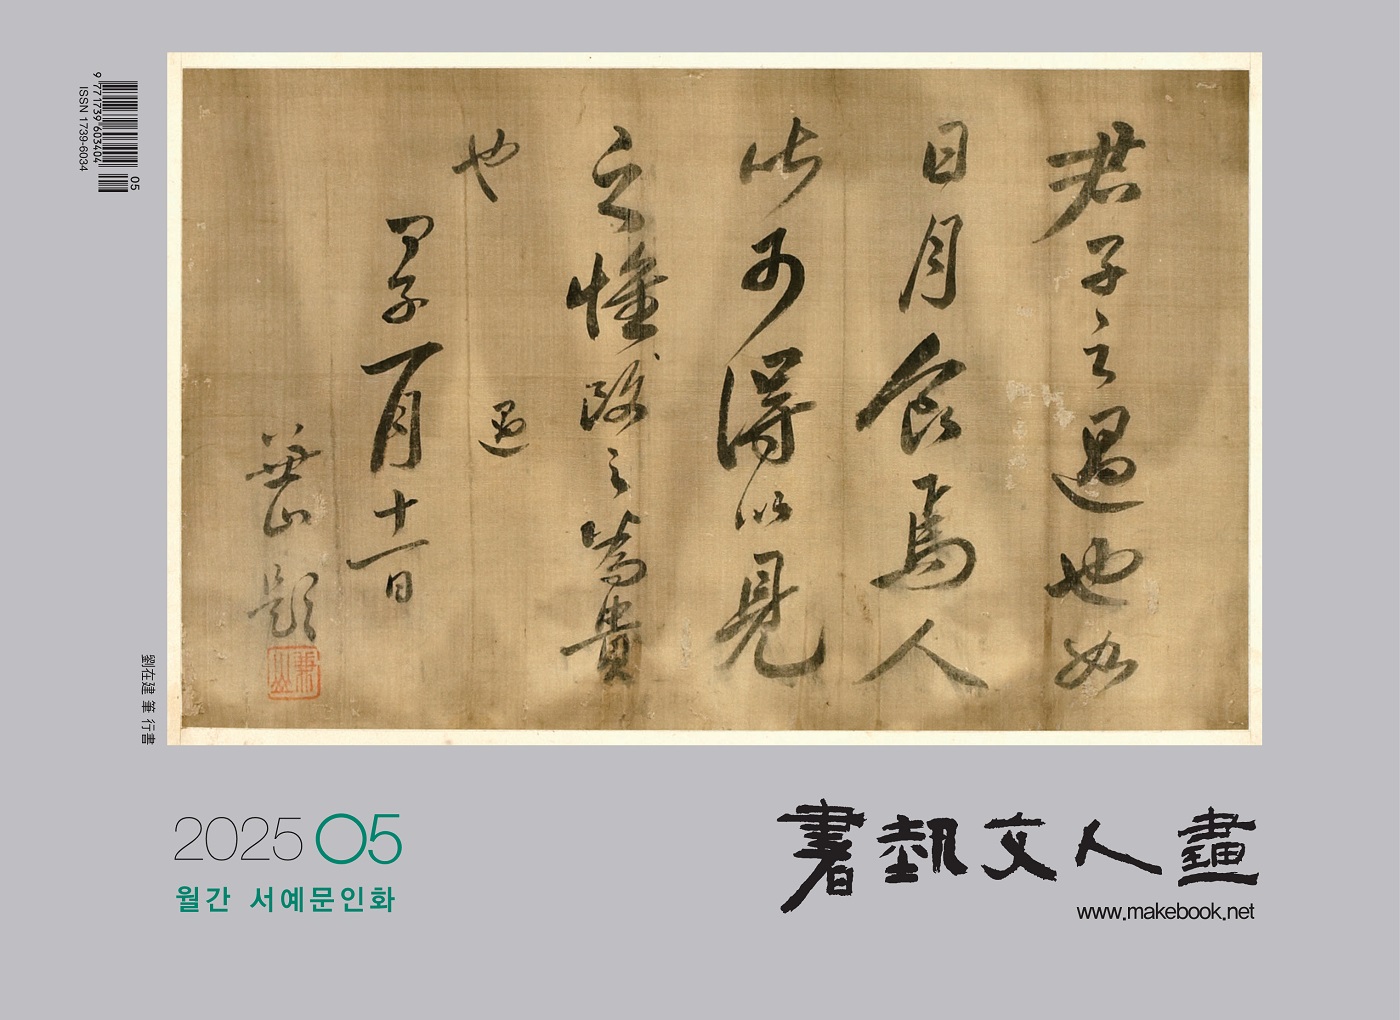 9 771739 603404
05
ISSN 1739-6034
君子之過也如
日月食焉人
皆可得以見
之惟改之爲貴
也 過
甲子一月十一日
華山題
劉在建 筆 行書
2025 05
월간 서예문인화
書藝文人畫
www.makebook.net